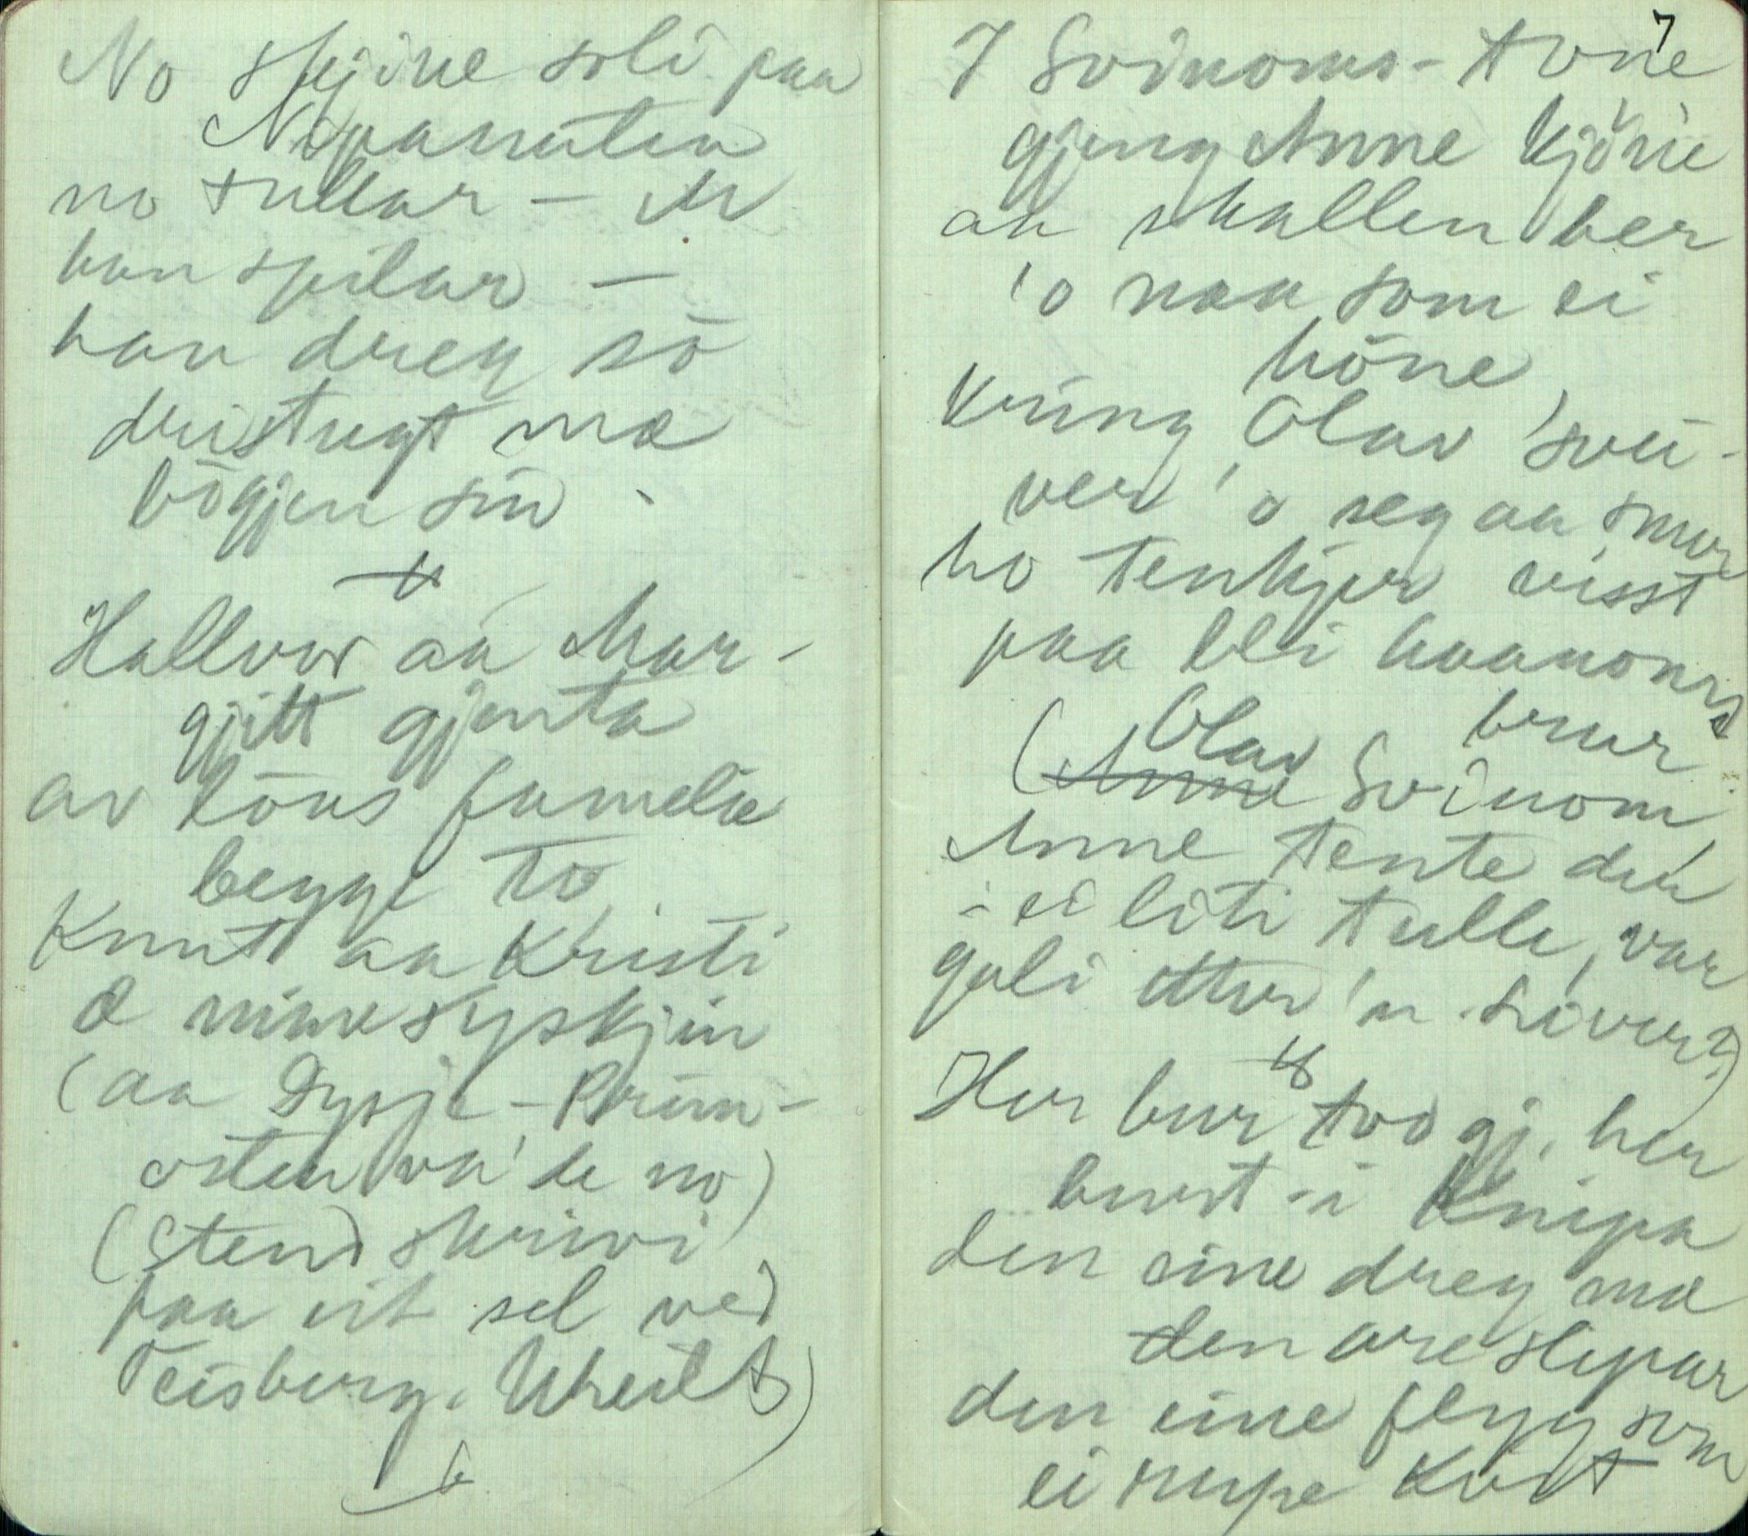 No skjine soli paa
Nipanuten
no tullar –
han spilar –
han dreg so
dristugt mæ
bogjen sin
Hallvor aa Mar-
gjitt gjenta
av lous famelie
begge to
Knut aa Kristi
æ mine syskjin
(aa Dysje-Prim-
osten va de no)
(Steno skrivi
paa eit sel ved
Veisburg. Uheilt)
7
I Svinoms-tone
gjeng Anne Kjöne
aa skallen ber
'o naa som ei
höne
kring Olav svei-
ver 'o seg aa smor
ho tenkjer visst
paa bli haanoms
brur
(Olav Svinom,
Anne tente der
i ei liti tulle, var
gali etter 'n Sivert)
Her bur tvo gj. her
burt i Knipa
den eine dreg mæ
den are slipar
den eine flyg som
ei rupe kvit